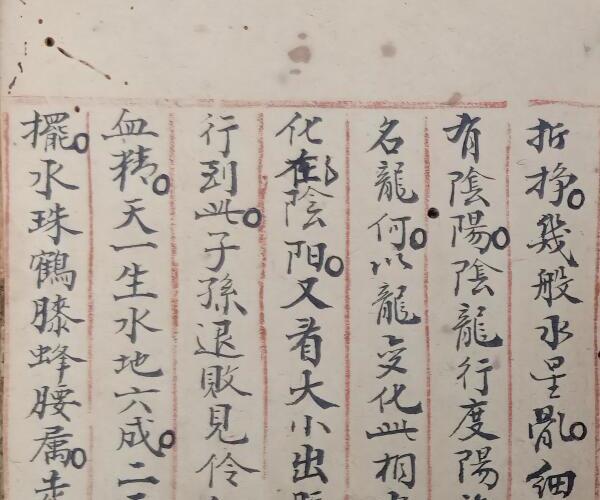 折挣。幾般水星亂。細
有陰陽。陰龍行度陽
名龍何。以龍變化此相
化在陰阳。又看大小出
行到此。子孫退敗見伶
血精。天一生水地六成。二
擺。水珠鶴膝蜂腰属。走